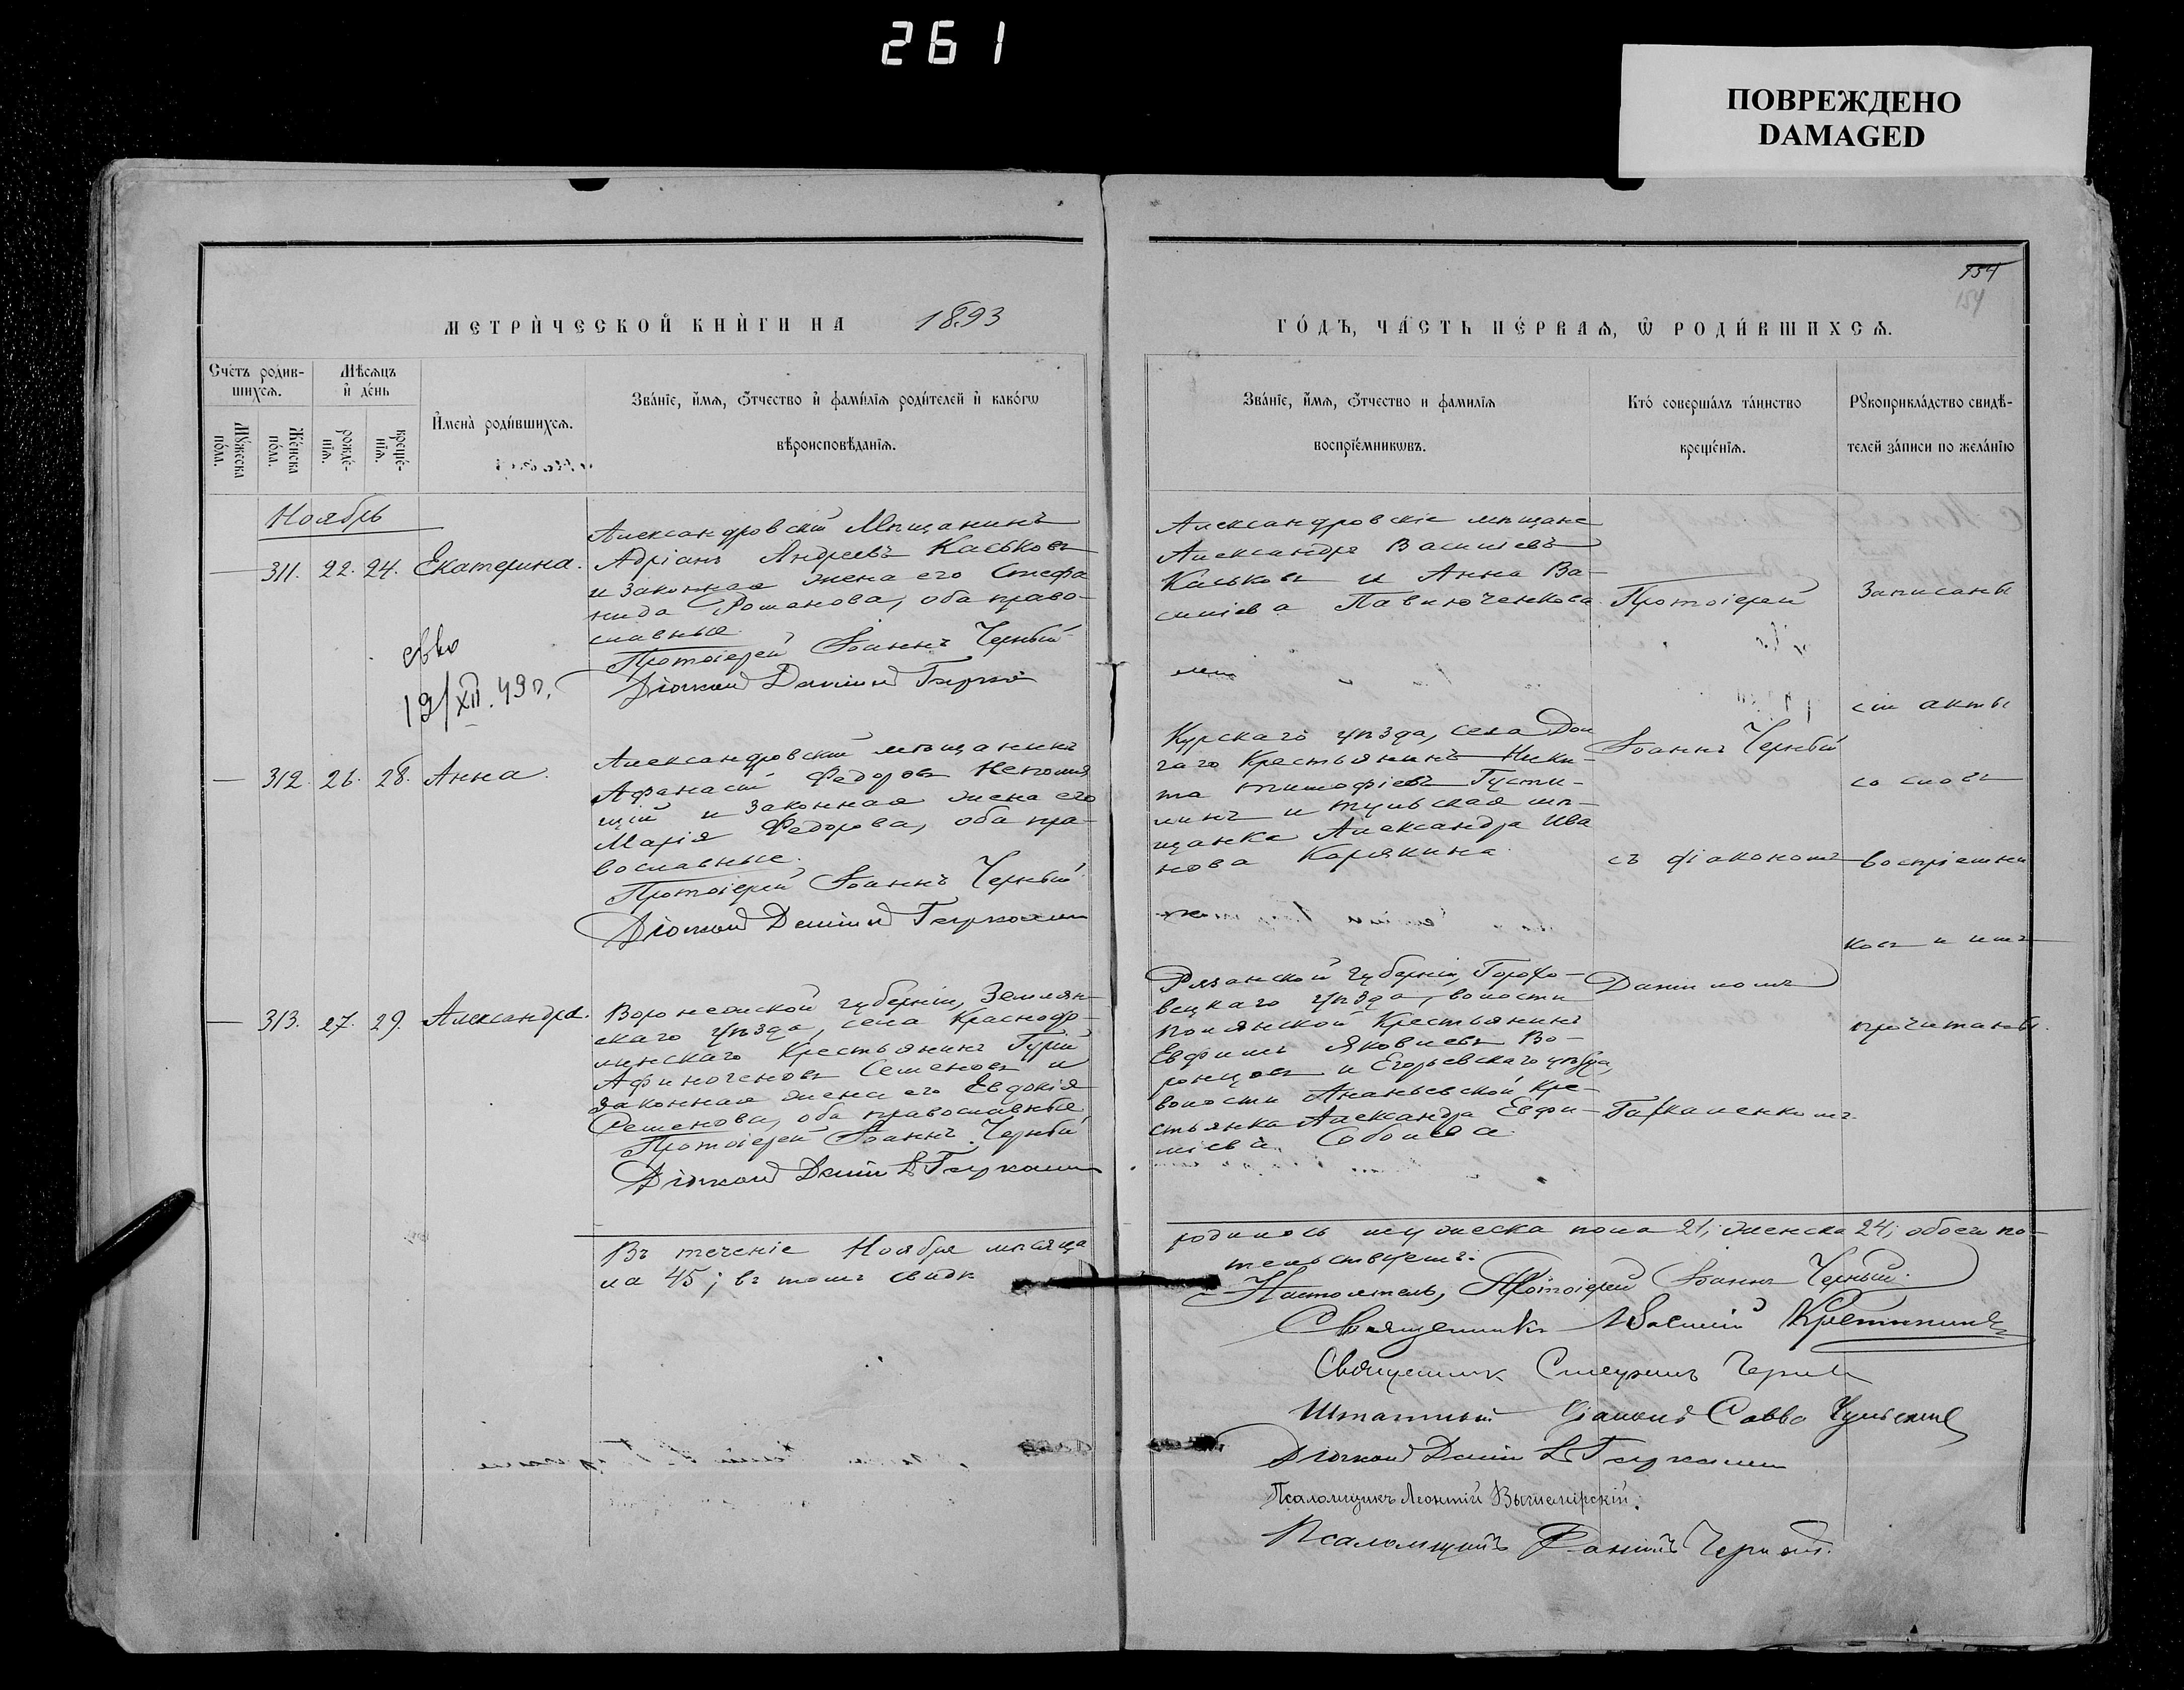 261
ПОВРЕЖДЕНО
DAMAGED
154
154
МЕТРИ́ЧЕСКОЙ КНИ́ГИ НА 1893
ГО́ДЪ, ЧА́СТЬ ПЕ́РВАѦ, Ѡ҆ РОДИ́ВШИХСѦ.
Сче́тъ родив-
шихсѧ.
Мꙋ́жеска по́ла.
Же́нска по́ла.
Мѣ́сѧцъ
и҆ де́нь
рожде́-
нїѧ.
креще́-
нїѧ.
И҆мена̀ роди́вшихсѧ.
Зва́нїе, и҆́мѧ, ѻ҆́тчество и҆ фами́лїѧ роди́телей и҆ како́гѡ
вѣроисповѣ́данїѧ.
Зва́нїе, и҆́мѧ, ѻ҆́тчество и фами́лїѧ
воспрїе́мникѡвъ.
Кто́ соверша́лъ та́инство
креще́нїѧ.
Рꙋкоприкла́дство свидѣ́-
телей за́писи по жела́нїю
Ноябрь
— 311. 22. 24. Екатерина.
Александровскій Мѣщанинъ
Адріанъ Андреевъ Каськовъ
и законная жена его Стефа
нида Романова, оба право-
славные.
Протоіерей Іоаннъ Черный
Діаконъ Даниилъ
Александровскіе мѣщане
Александръ Василіевъ
Каськовъ и Анна Ва-
силіева Павлюченкова
Протоіерей
Записаны
19/XII. 49 г.
сіи акты
— 312. 26. 28. Анна.
Александровскій мѣщанинъ
Афанасій Федоровъ Непомня
щій и законная жена его
Марія Федорова, оба пра-
вославные.
Протоіерей Іоаннъ Черный
Діаконъ Даниилъ Гаркаленко
Курскаго уѣзда, села Дол
гаго Крестьянинъ Ники-
та Тимофіевъ Густи-
линъ и Тульская мѣ-
щанка Александра Ива
нова Карякина.
Іоаннъ Черный
со словъ
съ діакономъ
воспріемни
ковъ и имъ
— 313. 27. 29. Александра.
Воронежской губерніи, Землян-
скаго уѣзда, села
Крестьянинъ Гурій
Афиногеновъ Семеновъ и
законная жена его Евдокія
Семенова, оба православные
Протоіерей Іоаннъ Черный
Діаконъ Даниилъ Гаркаленко
Рязанской губерніи, Горохо-
вецкаго уѣзда, волости
Полянской Крестьянинъ
Евфимъ Яковлевъ Во-
ронцовъ и Егорьевскаго уѣзда,
волости Ананьевской кре-
стьянка Александра Евфи-
міева Соболева
Данииломъ
прочитаны.
Гаркаленкомъ.
Въ теченіе Ноября мѣсяца
родилось мужеска пола 21; женска 24; обоего по-
ла 45; въ томъ свидѣ
тельствуемъ:
Настоятель, Протоіерей Іоаннъ Черный.
Священникъ
Священникъ
Штатный діаконъ Савва
Діаконъ Даниилъ Гаркаленко
Псаломщикъ Леонтій
Псаломщикъ